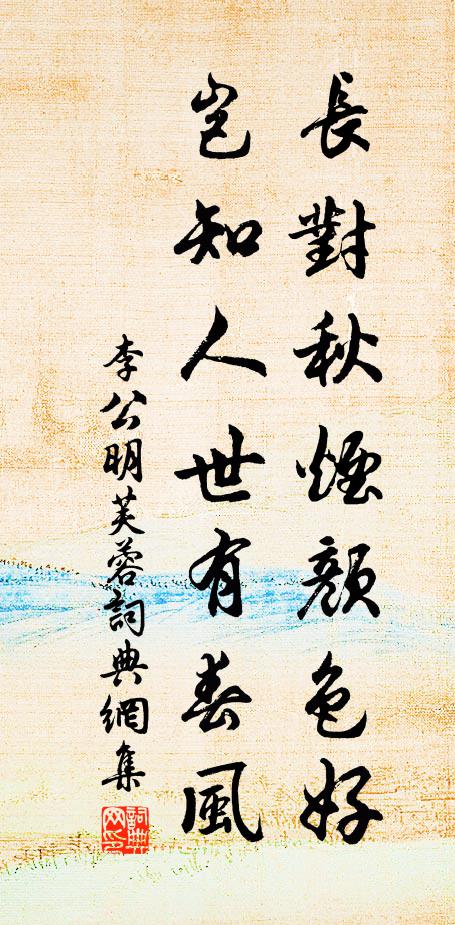 長對秋煙顏色好
豈知人世有春風
李公明芙蓉詞典網集
詞典网印